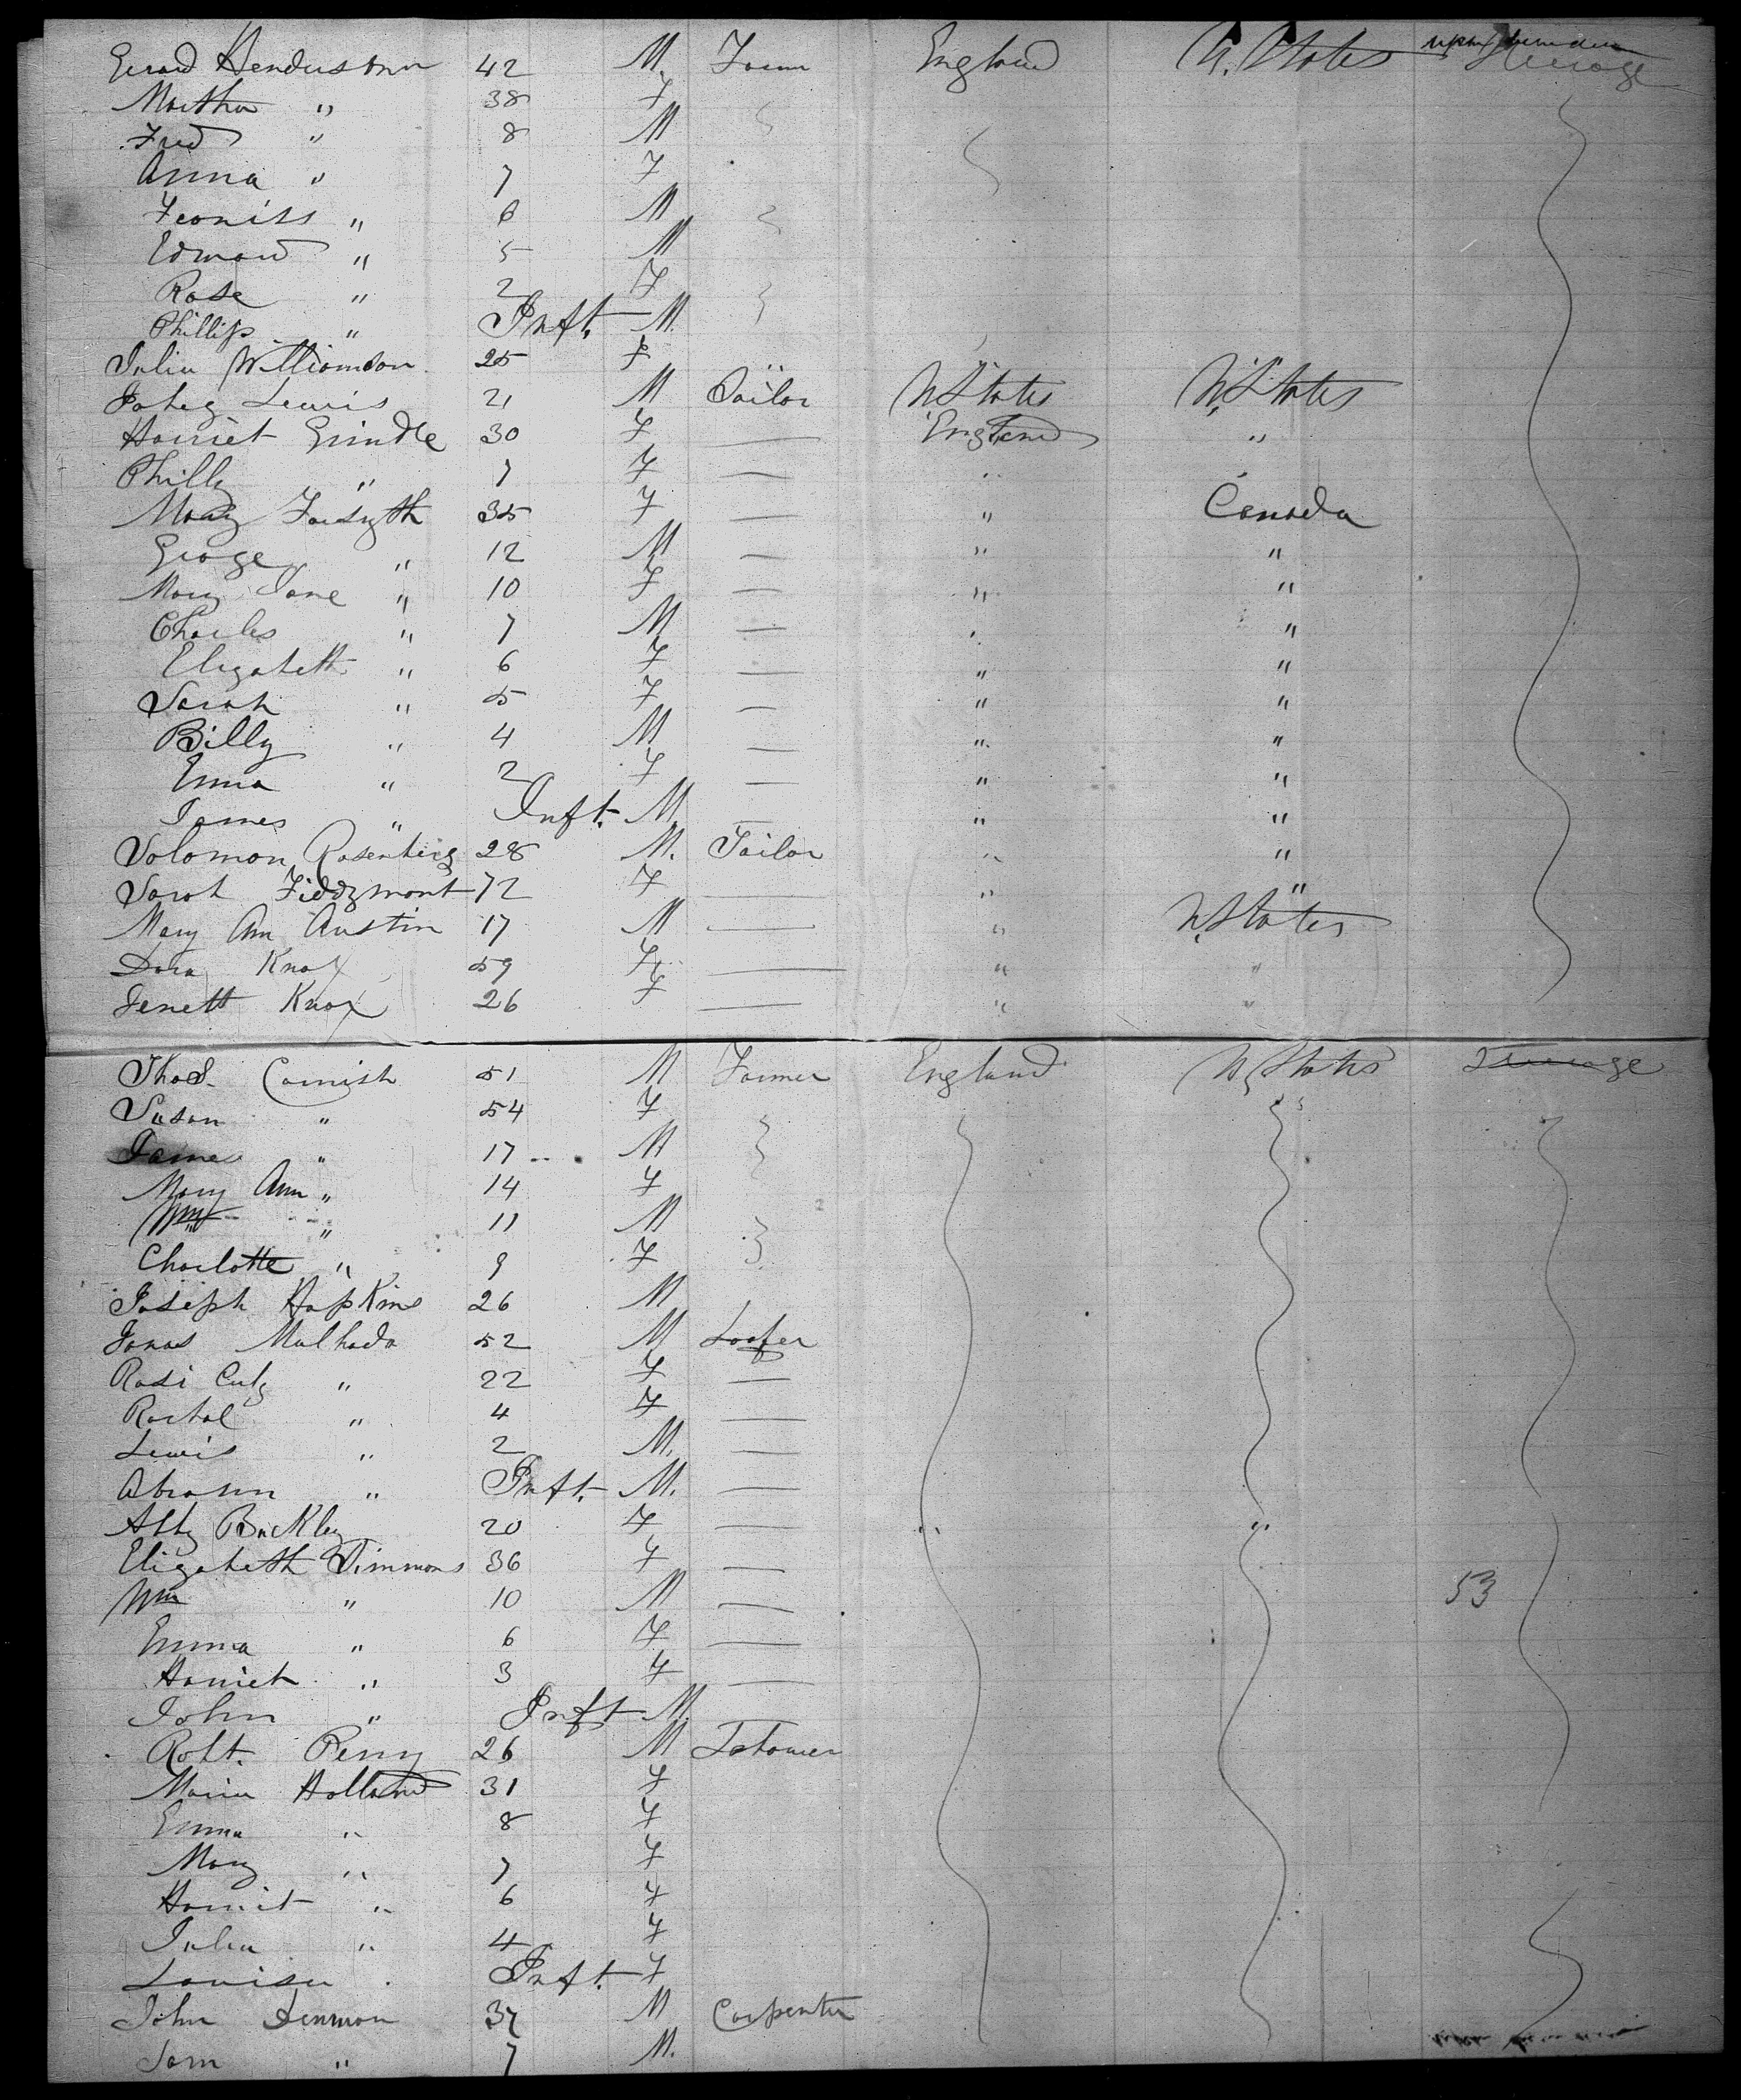 Henderson 42 M. England U. States Steerage
Martha " 38 F
Fred " 8 M
Anna " 7 F
" 6 M
Edward " 5 M
Rose " 2 F
Phillip " Inft. M.
Julia Williamson 25 F
Lewis 21 M Sailor U States U. States
Harriet Grindle 30 F — England "
Philly " 7 F — "
Mary Forsyth 35 F — " Canada
Geoge " 12 M — " "
Mary Jane " 10 F — " "
Charles " 7 M — " "
Elizabeth " 6 F — " "
Sarah " 5 F — " "
Billy " 4 M — " "
Emma " 2 F — " "
James " Inft. M. — " "
Solomon Rosenberg 28 M. Tailor " "
Sarah 72 F — " "
Mary Ann Austin 17 M — " U. States
Dora Knox 59 F — " "
Jenett Knox 26 F — " "
Thos. Cornish 51 M Farmer England U. States Steerage
Susan " 54 F
James " 17 M
Mary Ann " 14 F
Wm " 11 M
Charlotte " 9 F
Joseph Hopkins 26 M
Jonas 52 M Loafer
" 22 F —
Rachal " 4 F —
Lewis " 2 M. —
Abraham " Inft. M. —
Abby Buckley 20 F — " "
Elizabeth Timmons 36 F —
Wm " 10 M — 53
Emma " 6 F —
Harriet " 3 F —
John " Inft M.
Robt. Perry 26 M
Maria Holland 31 F
Emma " 8 F
Mary " 7 F
Harriet " 6 F
Julia " 4 F
Louisa Inft. F
John Denman 37 M Carpenter
Sam " 7 M.